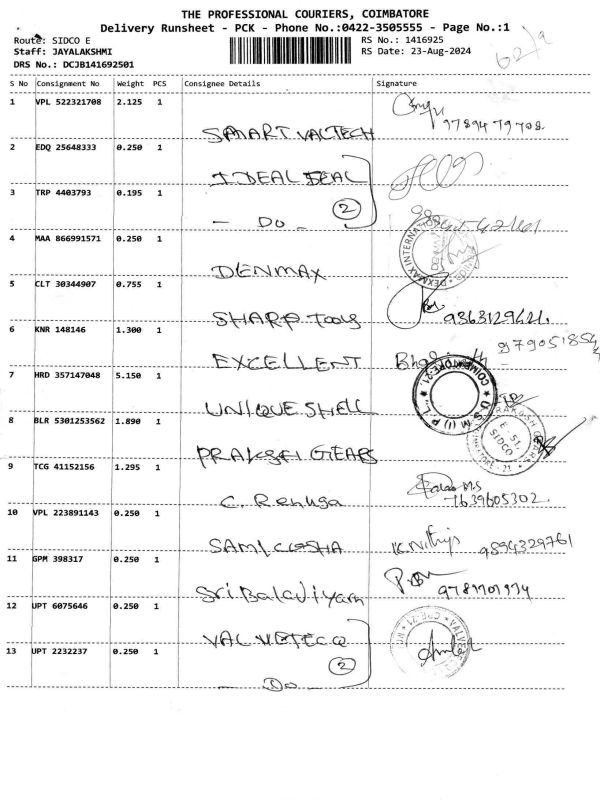 THE PROFESSIONAL COURIERS, COIMBATORE
Delivery Runsheet - PCK - Phone No.:0422-3505555 - Page No.:1
Route: SIDCO E RS No.: 1416925
Staff: JAYALAKSHMI RS Date: 23-Aug-2024
DRS No.: DCJB141692501
S No Consignment No Weight PCS Consignee Details Signature
1 VPL 522321708 2.125 1
SMART VALTECH
2 EDQ 25648333 0.250 1
IDEAL SEAL
3 TRP 4403793 0.195 1
- Do - 2
4 MAA 866991571 0.250 1
DENMAX
5 CLT 30344907 0.755 1
SHARP Tools
6 KNR 148146 1.300 1
EXCELLENT
7 HRD 357147048 5.150 1
UNIQUE SHELL
8 BLR 5301253562 1.890 1
GEARS
9 TCG 41152156 1.295 1
C. Renuga 7639605302
10 VPL 223891143 0.250 1
9894329761
11 GPM 398317 0.250 1
12 UPT 6075646 0.250 1
13 UPT 2232237 0.250 1
2
- Do -